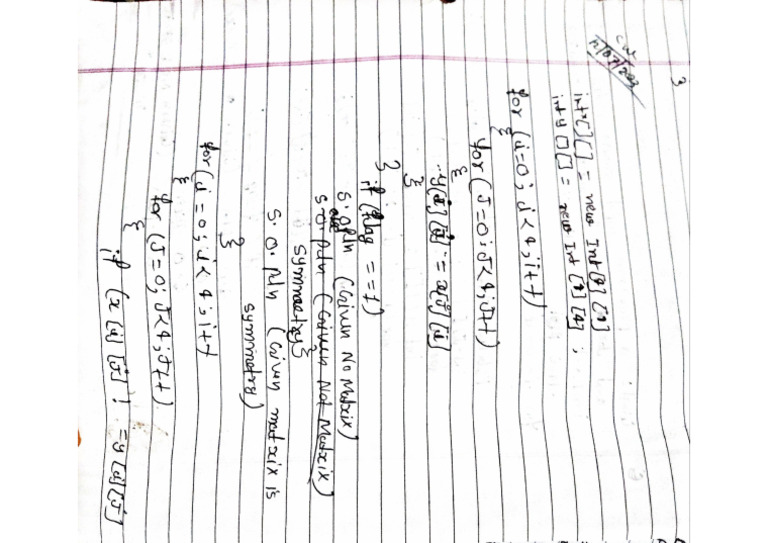 3
C.W
12/07/203
int x[][] = new Int[4][4]
int y[][] = new Int[4][4];
for (i=0; i<4; i++)
{
for (J=0; J<4; J++)
{
y[i][j] = x[j][i]
}
}
if (flag == 1)
S.O.Pln (Given No Matrix)
else
S.O.Pln (Given Not Matrix)
Symmetry}
S.O.Pln (Given matrix is
Symmetry)
}
for (i=0; i<4; i++
{
for (J=0; J<4; J++)
{
if (x[i][j] != y[i][j]